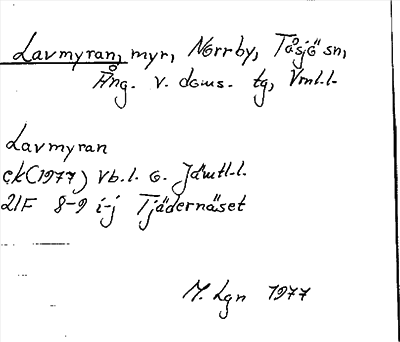 Lavmyran, myr, Norrby, Tåsjö sn,
Ång. v. doms. tg, Vnl.l.
Lavmyran
ek(1977) Vb.l. o. Jämtl.l.
21F 8-9 i-j Tjädernäset
M. Lgn 1977